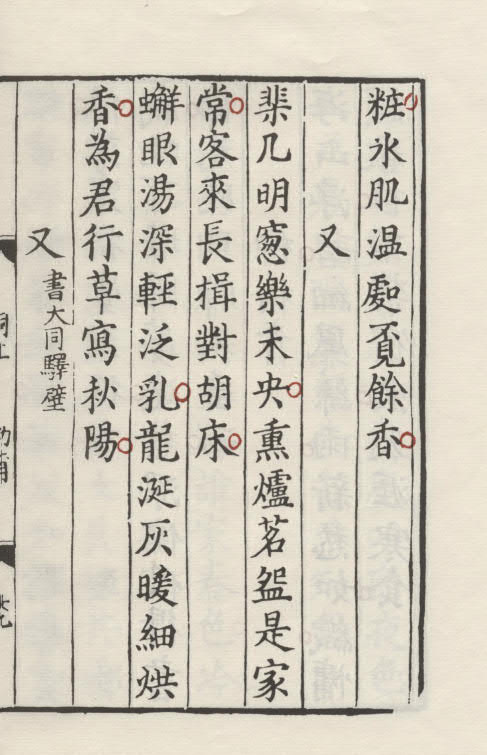 粧氷肌温處覔餘香
又
棐几明窻樂未央熏爐茗盌是家
常客來長揖對胡床
蠏眼湯深輕泛乳龍涎灰暖細烘
香為君行草寫秋陽
又 書大同驛壁